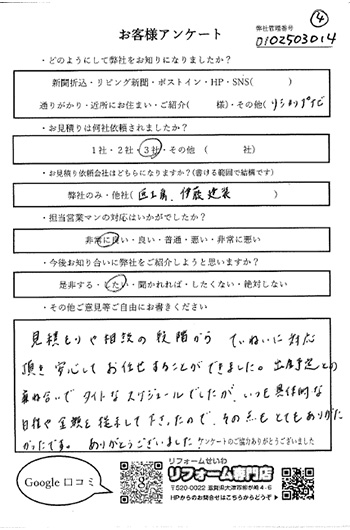 ④
お客様アンケート
弊社管理番号
0102503014
・どのようにして弊社をお知りになりましたか？
新聞折込・リビング新聞・ポストイン・HP・SNS(　　　)
通りがかり・近所にお住まい・ご紹介(　　　様)・その他(リショップナビ
・お見積りは何社依頼されましたか？
1社・2社・3社・その他 (　　　社)
・お見積り依頼会社はどちらになりますか？(書ける範囲で結構です)
弊社のみ・他社( 匠工房、伊藤建装 )
・担当営業マンの対応はいかがでしたか？
非常に良い・良い・普通・悪い・非常に悪い
・今後お知り合いに弊社をご紹介しようと思いますか？
是非する・したい・聞かれれば・したくない・絶対しない
・その他ご意見等ご自由にお書きください
見積もりや相談の段階から ていねいに対応
頂き 安心して お任せすることができました。出産予定との
兼ね合いで タイトな スケジュールでしたが、いつも具体的な
日程や金額を提示して下さったので、その点も とてもありがた
かったです。 ありがとうございました ケンケートのご協力ありがとうございました
Google 口コミ
リフォームせいわ
リフォーム専門店
〒520-0022 滋賀県大津市柳が崎4-6
HPからのお問合せはこちらからどうぞ